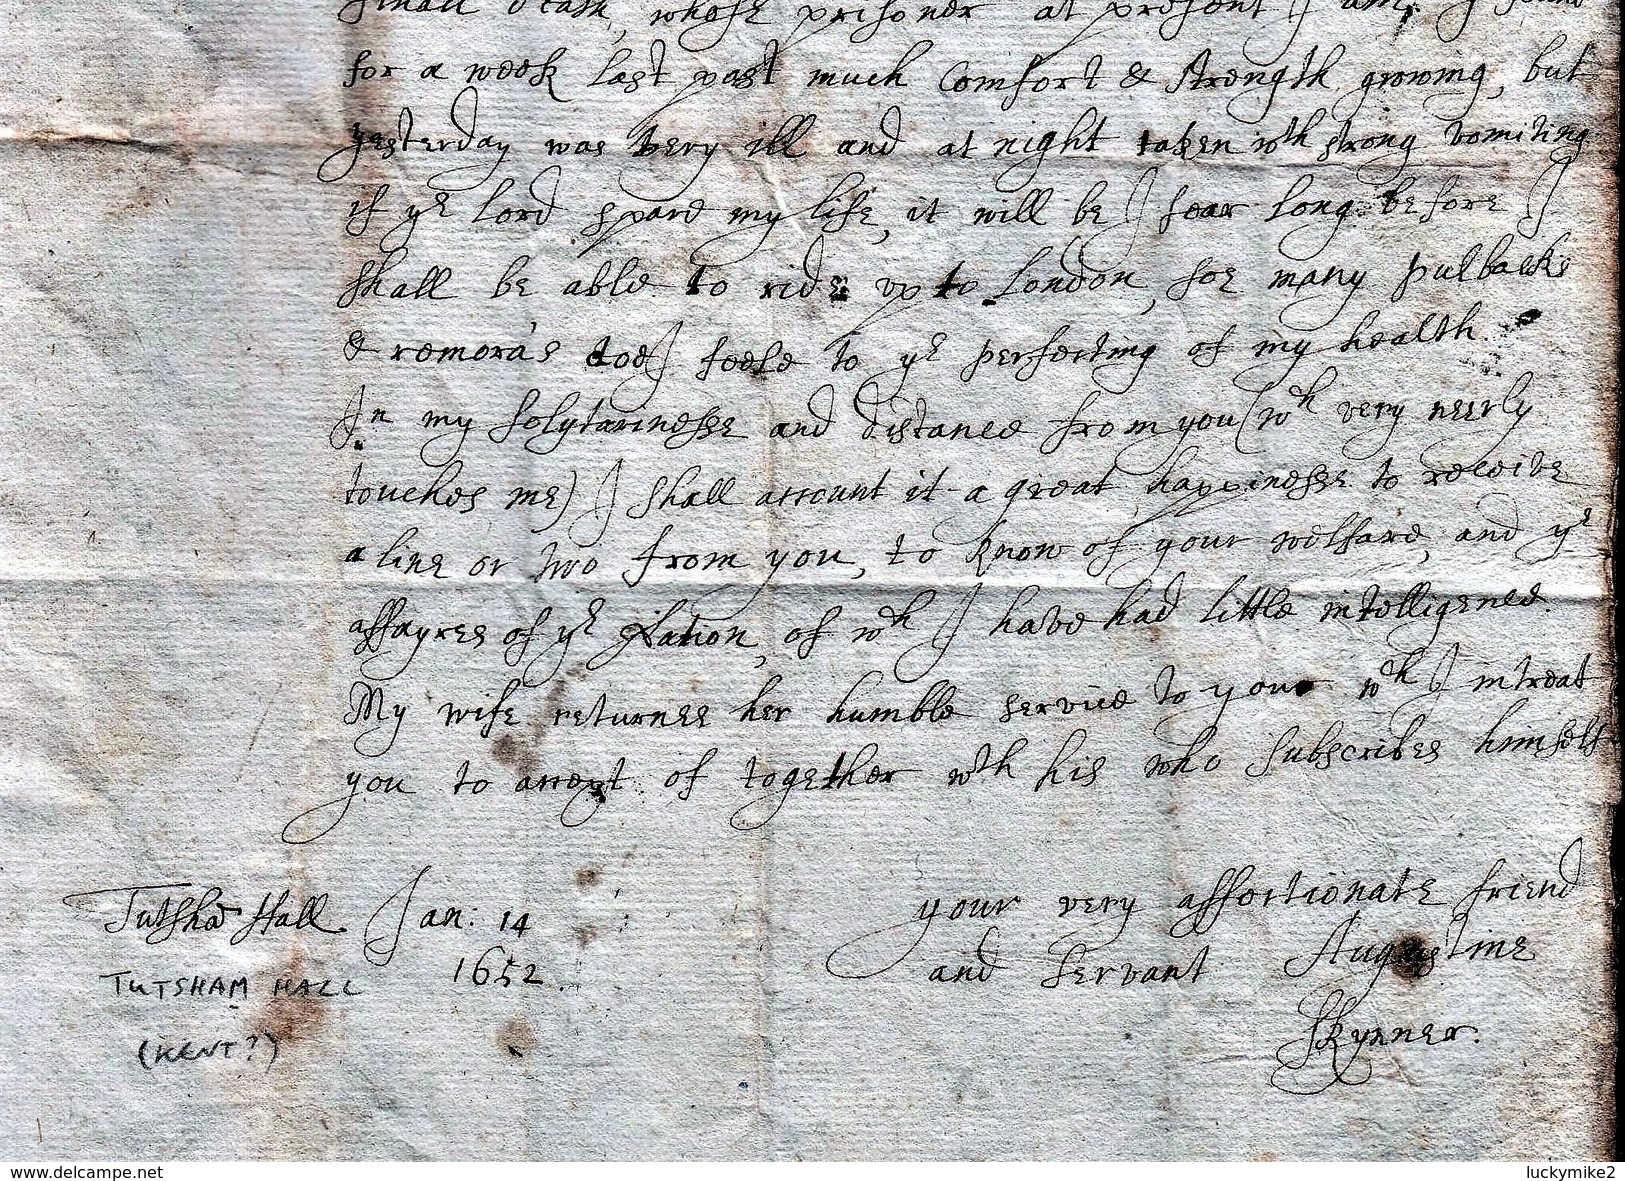 whose prisoner at present I am. I found
for a week last past much Comfort & strength growing, but
yesterday was very ill and at night taken wth strong vomiting
if ye Lord spare my life, it will be I fear long before I
shall be able to ride up to London, for many pulbacks
& remora's doe I feele to ye perfecting of my health.
In my solytarinesse and distance from you (wh very neerly
touches me) I shall account it a great happinesse to receive
a line or two from you, to know of your welfare, and ye
affayres of ye Nation, of wh I have had little intelligence.
My wife returnes her humble service to you wh I intreat
you to accept of together wth his who subscribes himself
your very affectionate friend
and servant Augustine
Skynner.
Tutshā Hall Jan: 14
1652.
TUTSHAM HALL
(KENT?)
www.delcampe.net
luckymike2